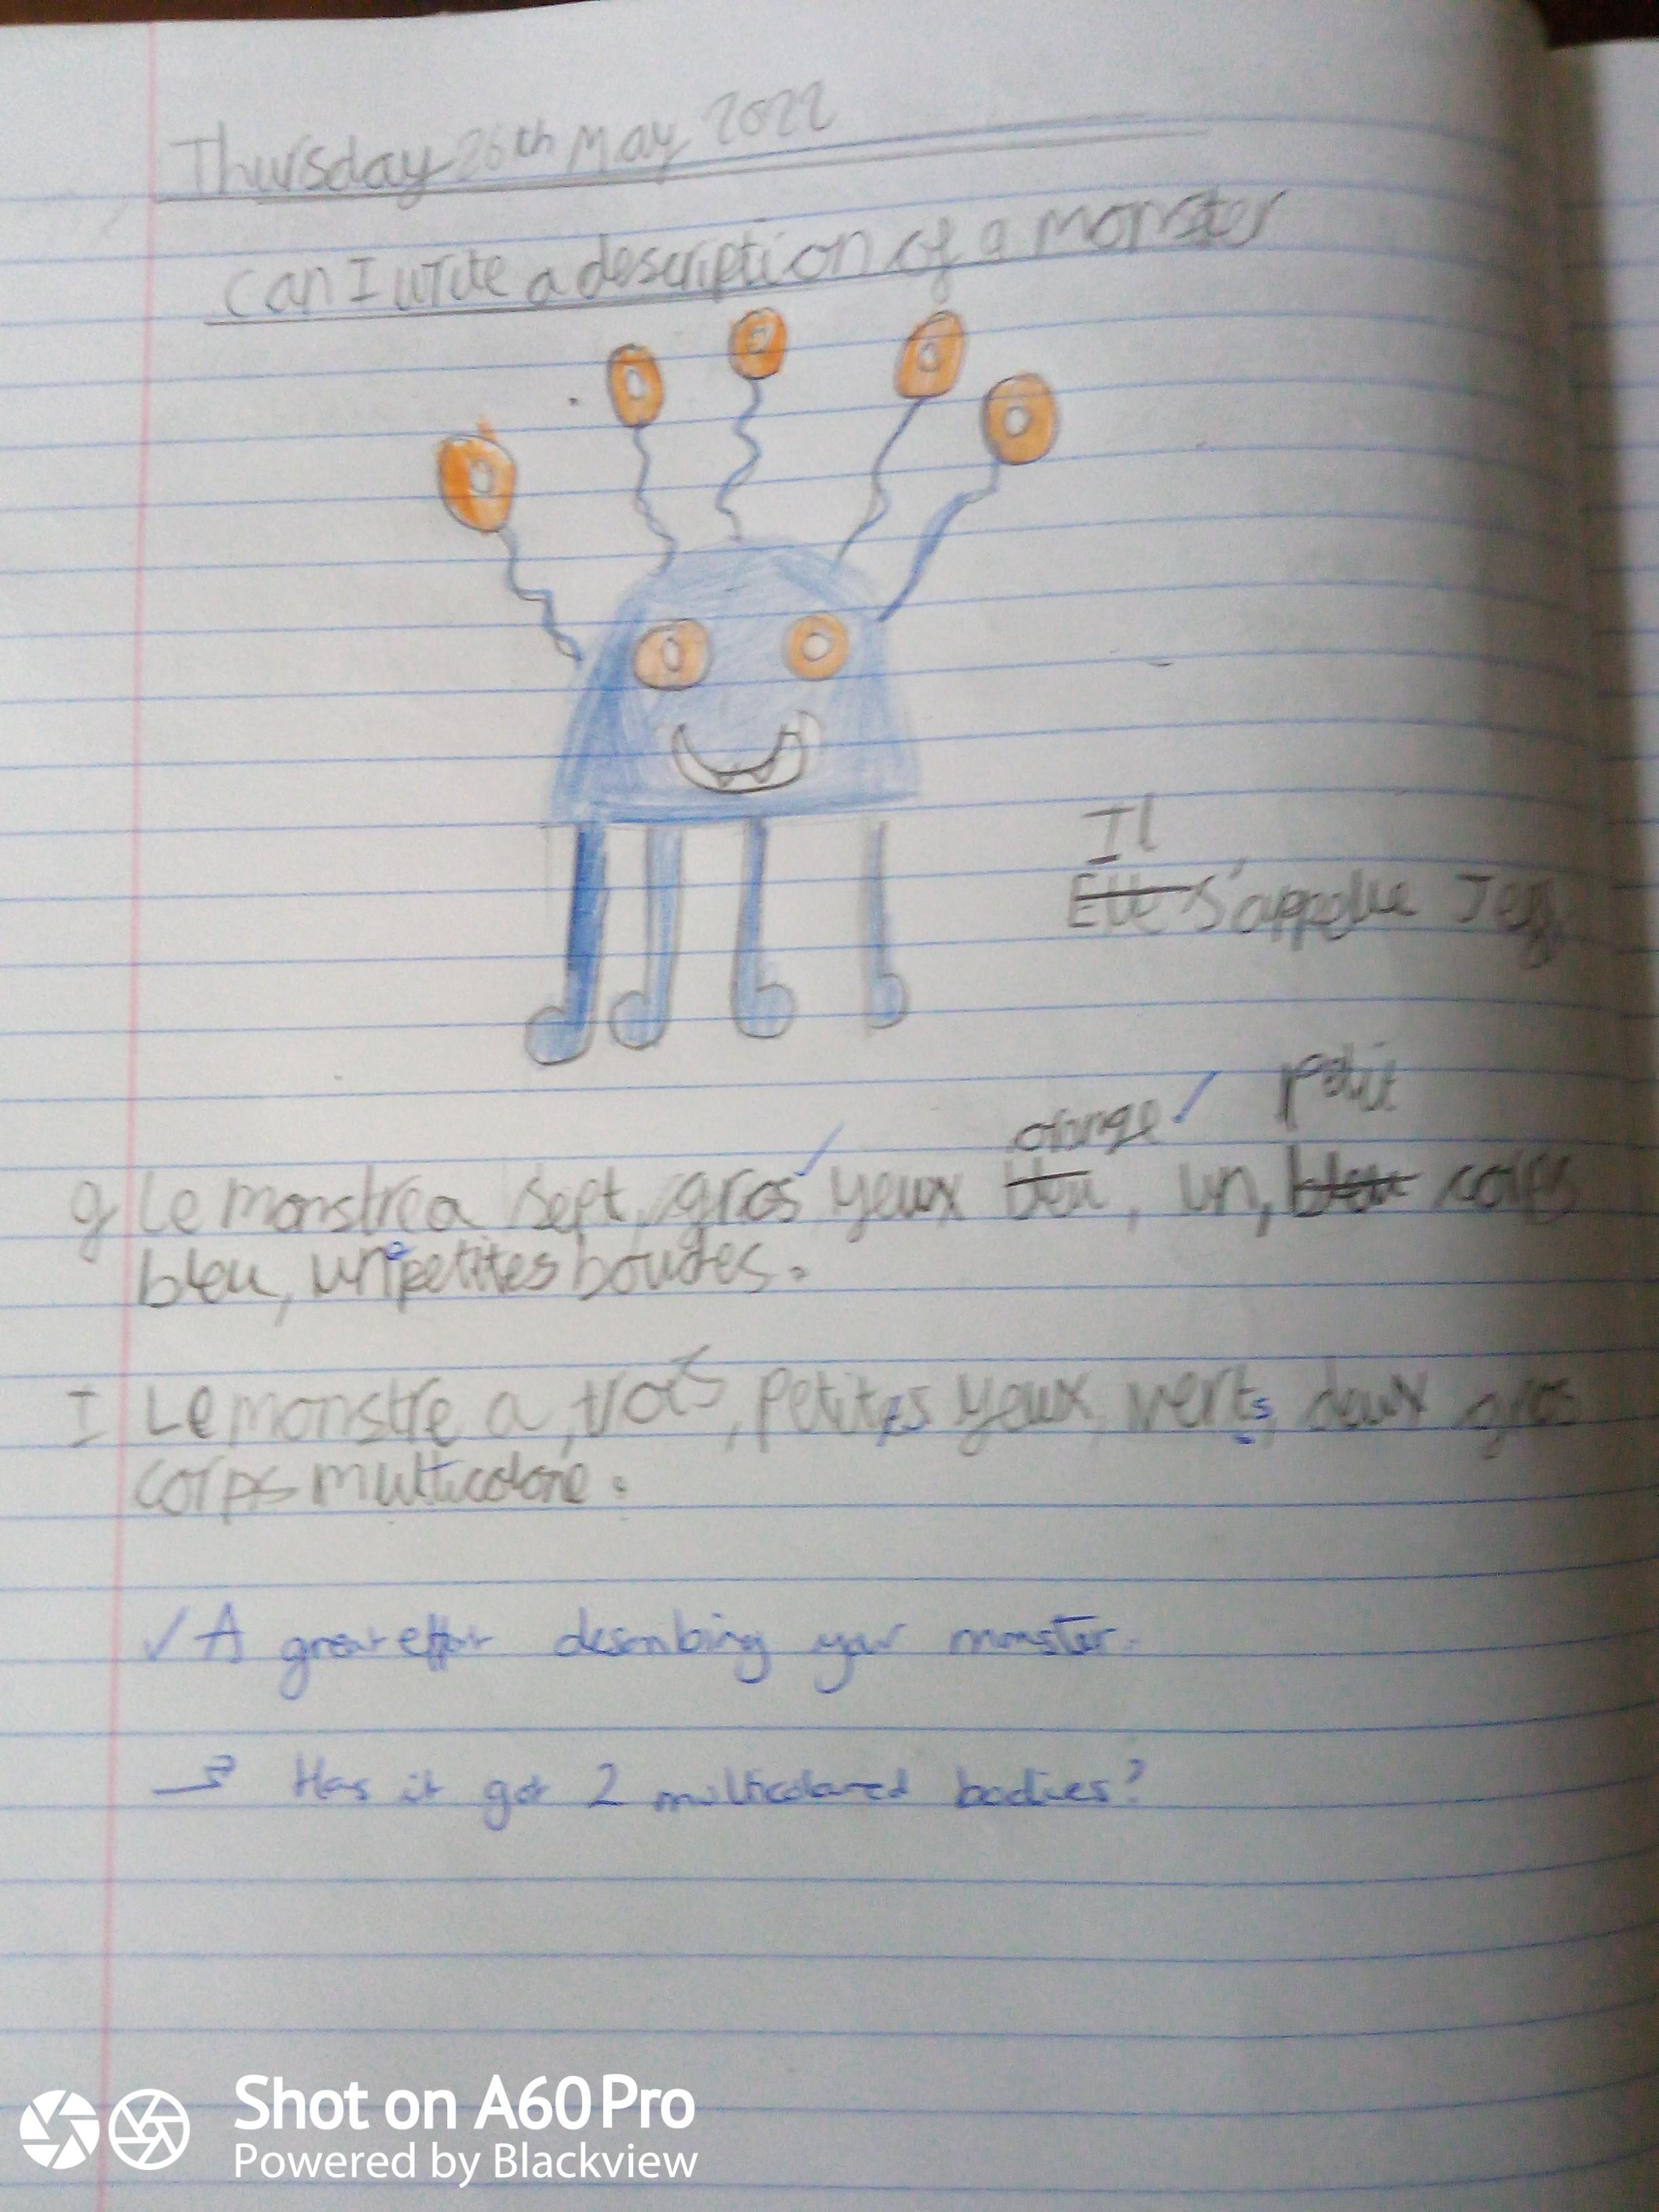 Thursday 26th May 2022
can I write a description of a monster
Il
Elle s'appelle Jeff
orange ✓ petit
g Le monstre a sept, gros ✓ yeux bleu, un, bleu corps
bleu, une petites bouches.
I Le monstre a, trois, petites yeux, verts, deux gros
corps multicolore.
✓ A great effort describing your monster.
→ Has it got 2 multicoloured bodies?
Shot on A60Pro
Powered by Blackview